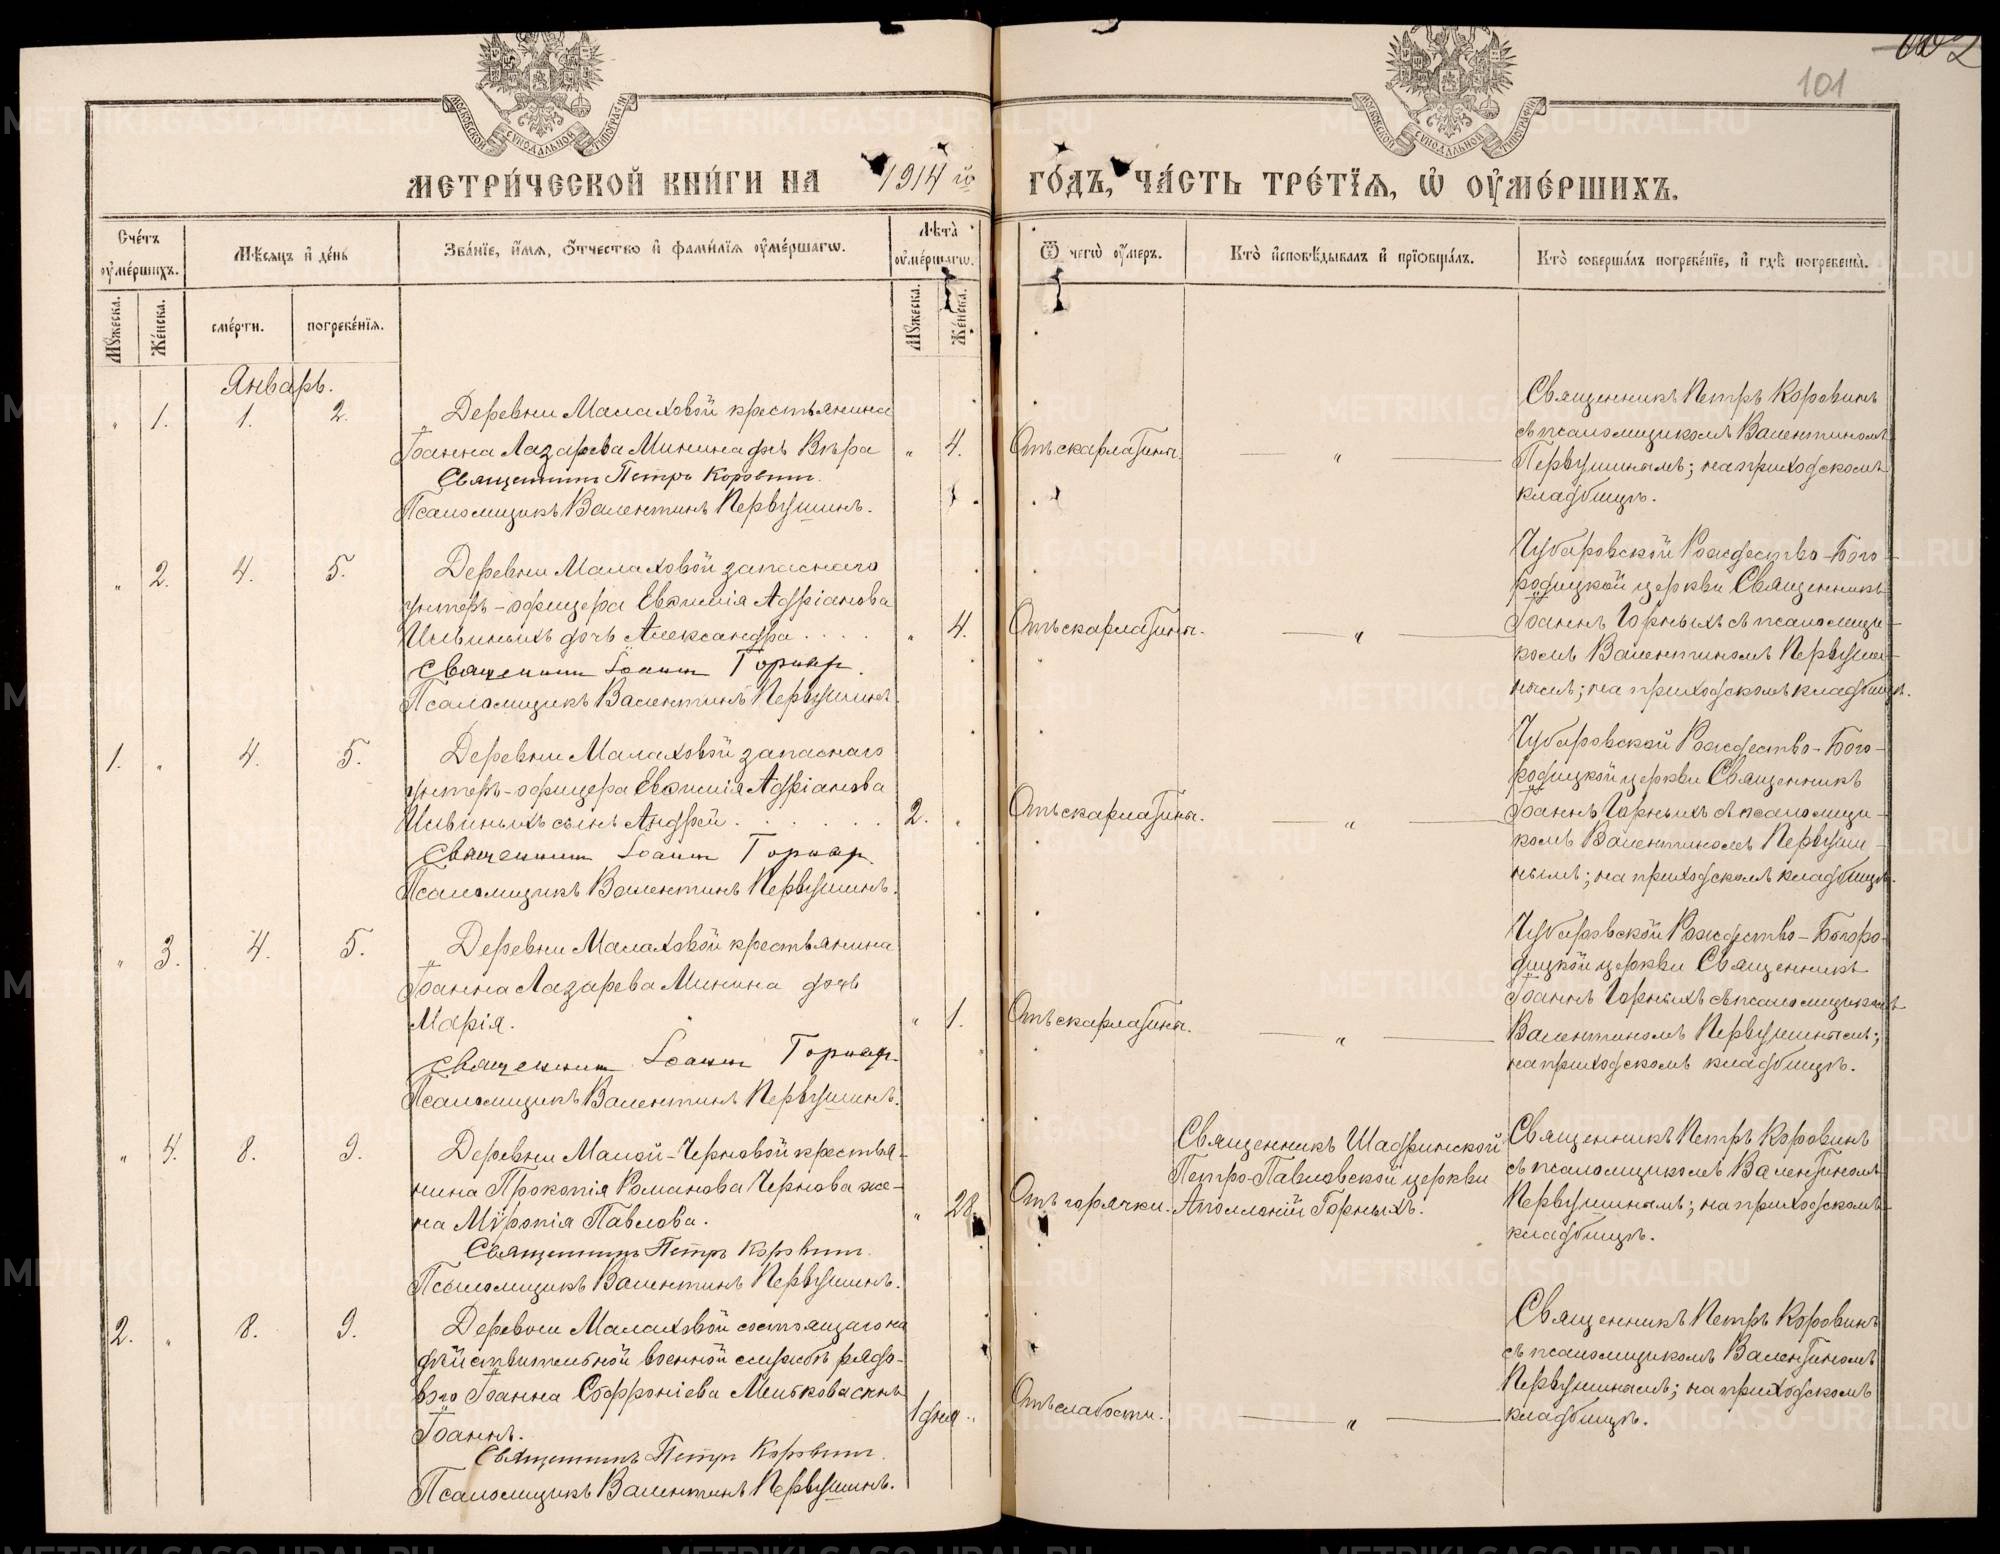 101
МОСКОВСКОЙ СУНОДАЛЬНОЙ ТИПОГРАФІИ
МОСКОВСКОЙ СУНОДАЛЬНОЙ ТИПОГРАФІИ
МЕТРИ́ЧЕСКОЙ КНИ́ГИ НА 1914 й
ГО́ДЪ, ЧА́СТЬ ТРЕ́ТІЯ, Ѡ ОУ҆МЕ́РШИХЪ.
Сче́тъ оу҆ме́ршихъ.
Мѣ́сяцъ и҆ де́нь
Зва́нїе, и҆́мя, ѻ҆́тчество и҆ фами́лїя оу҆ме́ршагѡ.
Лѣта̀ оу҆ме́ршагѡ.
Ѿ чегѡ̀ оу҆́меръ.
Кто̀ и҆сповѣ́дывалъ и҆ прїѡбща́лъ.
Кто̀ соверша́лъ погребе́нїе, и҆ гдѣ̀ погребены̀.
Му́жеска.
Же́нска.
сме́рти.
погребе́нїя.
Му́жеска.
Же́нска.
Январь.
" 1. 1. 2.
Деревни Малаховой крестьянина
Іоанна Лазарева Минина дчь Вѣра " 4.
Священникъ Петръ Коровинъ.
Псаломщикъ Валентинъ Первушинъ.
Отъ скарлатины.
"
Священникъ Петръ Коровинъ
съ псаломщикомъ Валентиномъ
Первушинымъ; на приходскомъ
кладбищѣ.
" 2. 4. 5.
Деревни Малаховой запаснаго
унтеръ-офицера Евѳимія Адріанова
Ильиныхъ дочь Александра . . . . " 4.
Священникъ Іоаннъ Горныхъ.
Псаломщикъ Валентинъ Первушинъ.
Отъ скарлатины.
"
Чубаровской Рождество-Бого-
родицкой церкви Священникъ
Іоаннъ Горныхъ съ псаломщи-
комъ Валентиномъ Первуши-
нымъ; на приходскомъ кладбищѣ.
1. " 4. 5.
Деревни Малаховой запаснаго
унтеръ-офицера Евѳимія Адріанова
Ильиныхъ сынъ Андрей . . . . . . 2. "
Священникъ Іоаннъ Горныхъ
Псаломщикъ Валентинъ Первушинъ.
Отъ скарлатины.
"
Чубаровской Рождество-Бого-
родицкой церкви Священникъ
Іоаннъ Горныхъ съ псаломщи-
комъ Валентиномъ Первуши-
нымъ; на приходскомъ кладбищѣ.
" 3. 4. 5.
Деревни Малаховой крестьянина
Іоанна Лазарева Минина дочь
Марія. " 1.
Священникъ Іоаннъ Горныхъ
Псаломщикъ Валентинъ Первушинъ.
Отъ скарлатины.
"
Чубаровской Рождество-Богоро-
дицкой церкви Священникъ
Іоаннъ Горныхъ съ псаломщикомъ
Валентиномъ Первушинымъ;
на приходскомъ кладбищѣ.
" 4. 8. 9.
Деревни Малой-Черновой крестья-
нина Прокопія Романова Чернова же-
на Мѵропія Павлова. " 28.
Священникъ Петръ Коровинъ.
Псаломщикъ Валентинъ Первушинъ.
Отъ горячки.
Священникъ Шадринской
Петро-Павловской церкви
Аполлоній Горныхъ.
Священникъ Петръ Коровинъ
съ псаломщикомъ Валентиномъ
Первушинымъ; на приходскомъ
кладбищѣ.
2. " 8. 9.
Деревни Малаховой состоящаго на
дѣйствительной военной службѣ рядо-
вого Іоанна Софроніева Милькова сынъ
Іоаннъ. 1 дня "
Священникъ Петръ Коровинъ.
Псаломщикъ Валентинъ Первушинъ.
Отъ слабости.
"
Священникъ Петръ Коровинъ
съ псаломщикомъ Валентиномъ
Первушинымъ; на приходскомъ
кладбищѣ.
METRIKI.GASO-URAL.RU